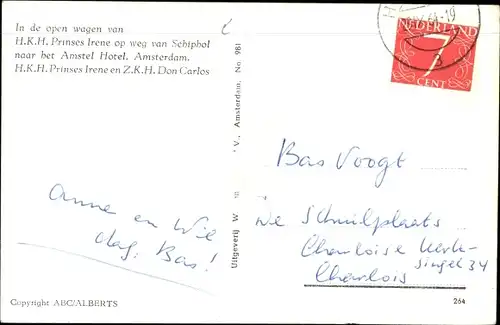 In de open wagen van
H.K.H. Prinses Irene op weg van Schiphol
naar het Amstel Hotel, Amsterdam.
H.K.H. Prinses Irene en Z.K.H. Don Carlos
NEDERLAND
7
CENT
Uitgeverij W V., Amsterdam, No 981
Bas Voogt
De Schuilplaats
Charloise Kerk-
singel 34
Charlois
Anne en Wie
dag, Bas!
Copyright ABC/ALBERTS
264